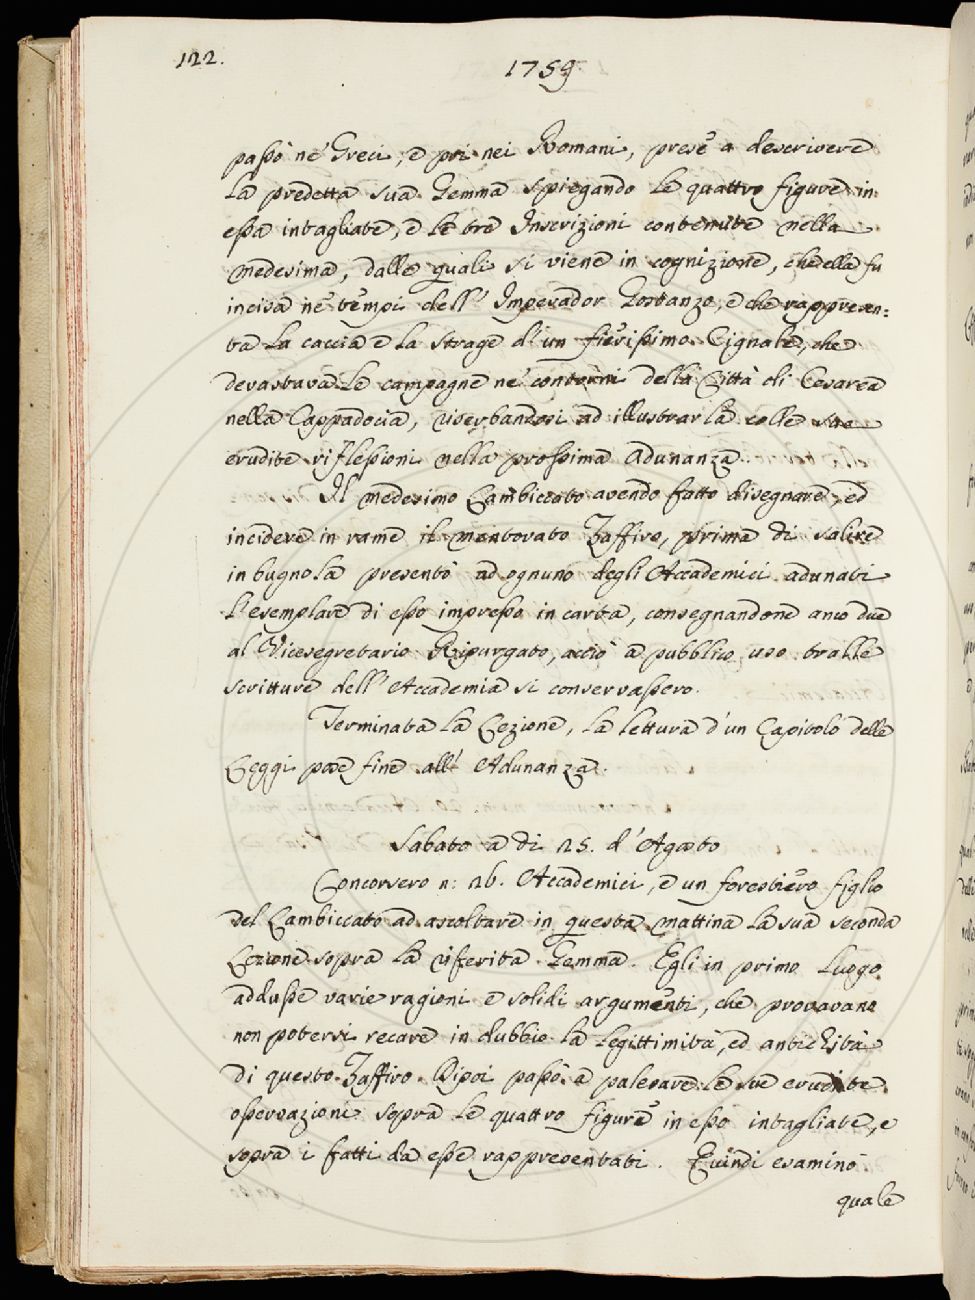 122.
1759
passò ne' Greci, e poi nei Romani, prese a descrivere
la predetta sua Gemma spiegando le quattro figure in
essa intagliate, e le tre Inscrizioni contenute nella
medesima, dalle quali si viene in cognizione, che ella fu
incisa ne' tempi dell' Imperador Costanzo, e che rappresen=
ta la caccia e la strage d' un fierissimo Cignale, che
devastava le campagne ne' contorni della Città di Cesarea
nella Cappadocia, riserbandosi ad illustrarla colle sue
erudite riflessioni nella prossima Adunanza.
Il medesimo Lambiccato avendo fatto disegnare, ed
incidere in rame il mentovato Zaffiro, prima di salire
in bugnola presentò ad ognuno degli Accademici adunati
l' esemplare di esso impresso in carta, consegnandone anco due
al Vicesegretario Ripurgato, acciò a pubblico uso tralle
scritture dell' Accademia si conservassero.
Terminata la Lezione, la lettura d' un Capitolo delle
Leggi pose fine all' Adunanza.
Sabato a dì 25. d' Agosto
Concorsero n: 26. Accademici, e un forestiero figlio
del Lambiccato ad ascoltare in questa mattina la sua seconda
Lezione sopra la riferita Gemma. Egli in primo luogo
addusse varie ragioni e solidi argumenti, che provavano
non potersi recare in dubbio la legittimità, ed antichità
di questo Zaffiro. Dipoi passò a palesare le sue erudite
osservazioni sopra le quattro figure in esso intagliate, e
sopra i fatti da esse rappresentati. Quindi esaminò
quale